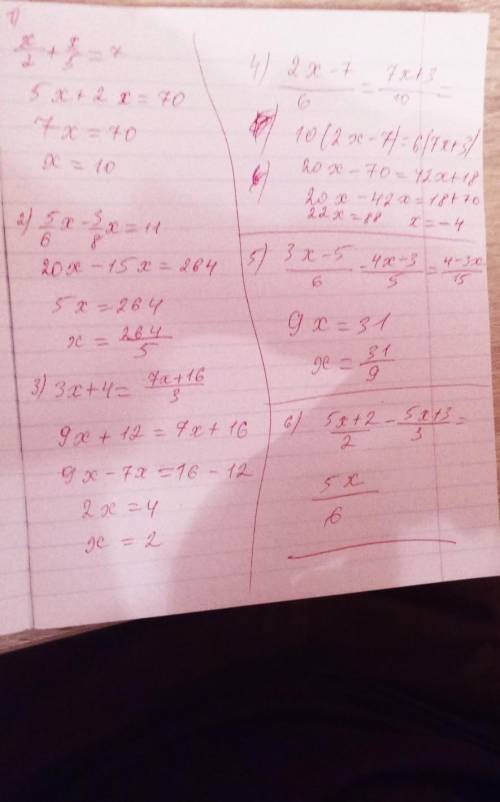 1)
x/2 + x/5 = 7
5x + 2x = 70
7x = 70
x = 10
2) 5/6 x - 3/8 x = 11
20x - 15x = 264
5x = 264
x = 264/5
3) 3x + 4 = (7x + 16)/3
9x + 12 = 7x + 16
9x - 7x = 16 - 12
2x = 4
x = 2
4) (2x - 7)/6 = (7x + 3)/10 =
10(2x - 7) = 6(7x + 3)
20x - 70 = 42x + 18
20x - 42x = 18 + 70
22x = 88 x = -4
5) (3x - 5)/6 - (4x - 3)/5 = (4 - 3x)/15
9x = 31
x = 31/9
6) (5x + 2)/2 - (5x + 3)/3 =
5x/6